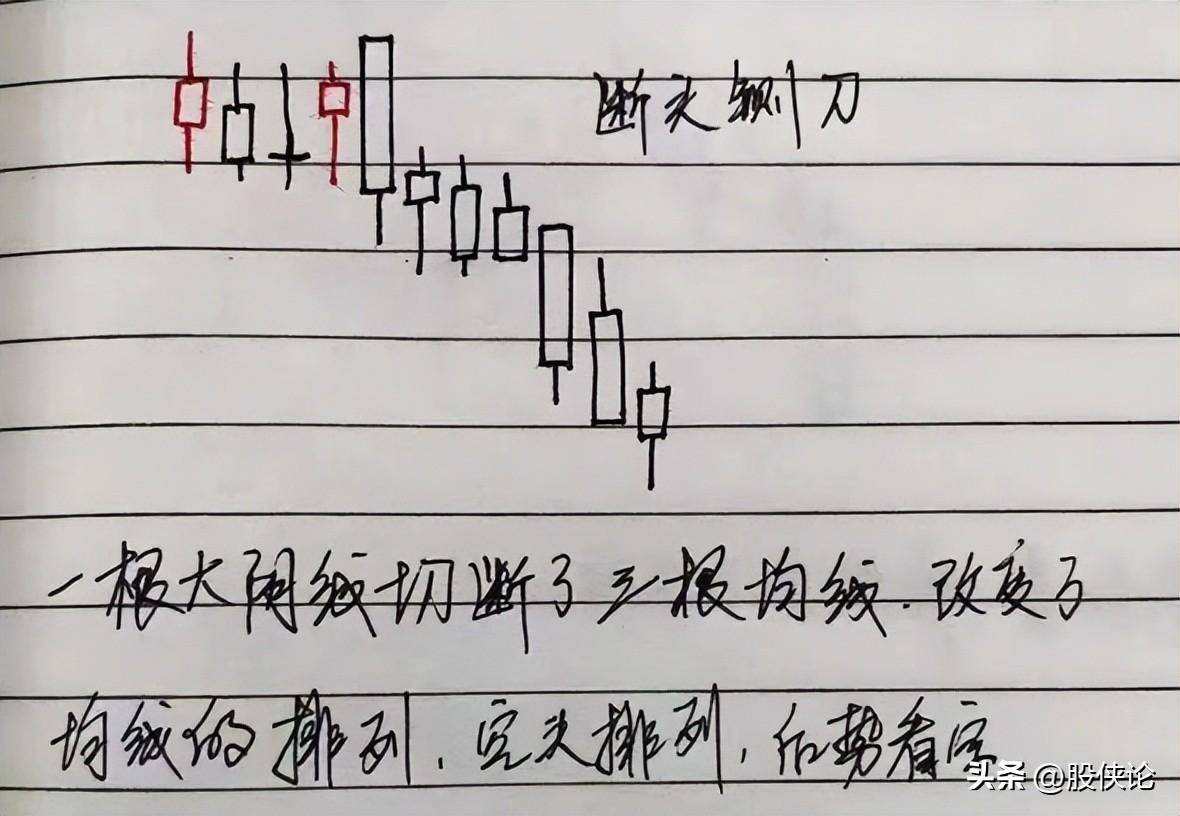 断头铡刀
一根大阴线切断了三根均线.改变了
均线的排列.空头排列,后势看空
头条 @股侠论